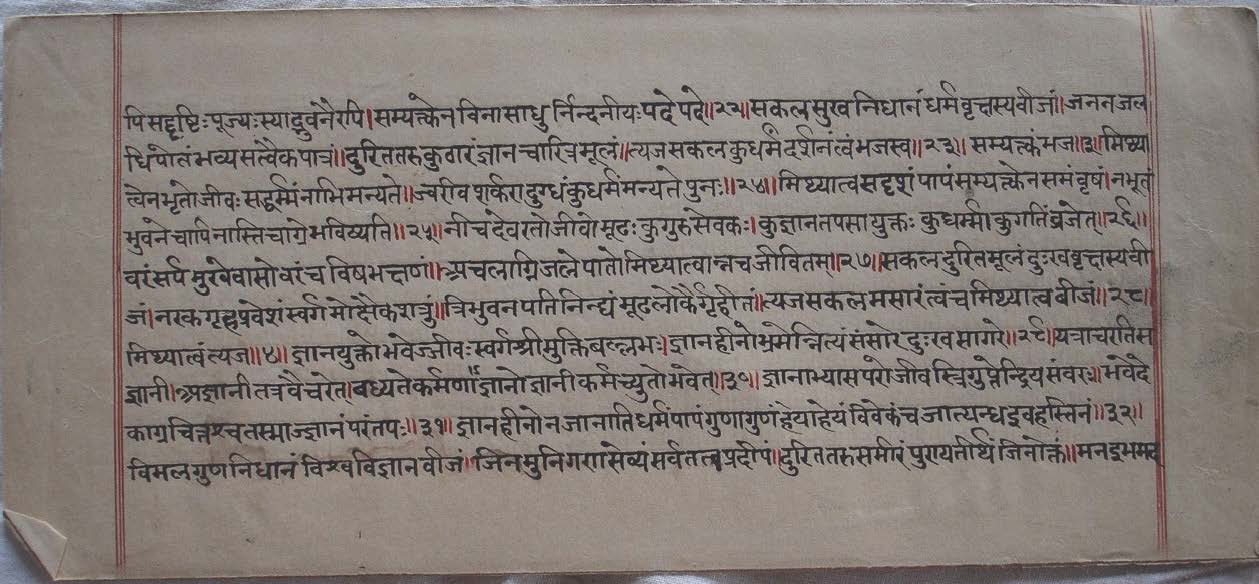 पि सद्दृष्टिः पूज्यः स्याद्भुवनैरपि। सम्यत्क्केन विना साधु र्निन्दनीयः पदे पदे॥२२॥ सकल सुख निधानं धर्म वृक्षस्य बीजं। जनन जल
धिपोतं भव्य सत्वैक पात्रं॥ दुरित तरु कुठारं ज्ञान चारित्र मूलं॥ त्यज सकल कुधर्मं दर्शनं त्वं भजस्व॥२३॥ सम्यत्क्कं भज॥३॥ मिथ्या
त्वेन भृतो जीवः सद्धर्म्मं नाभिमन्यते॥ ज्वरीव शर्करा दुग्धं कुधर्मं मन्यते पुनः॥२४॥ मिथ्यात्व सदृशं पापं सम्यत्क्केन समं वृषं। न भूतं
भुवने चापि नास्ति चाग्रे भविष्यति॥२५॥ नीच देवरतो जीवो मूढः कुगुरु सेवकः। कुज्ञान तपसा युक्तः कुधर्म्मा कुगतिं व्रजेत्॥२६॥
वरं सर्प मुखे वासो वरं च विष भक्षणं॥ अचलाग्नि जले पातो मिथ्यात्वान्न च जीवितम्॥२७॥ सकल दुरित मूलं दुःख वृक्षस्य बी
जं। नरक गृह प्रवेशं स्वर्ग मोक्षैक शत्रुं॥ त्रिभुवन पति निन्द्यं मूढ लोकैर्गृहीतं॥ त्यज सकल मसारं त्वं च मिथ्यात्व बीजं॥२८॥
मिथ्यात्वं त्यज॥४॥ ज्ञान युक्तो भवेज्जीवः स्वर्गश्री मुक्ति बल्लभः। ज्ञान हीनो भ्रमेन्नित्यं संसारे दुःख सागरे॥२९॥ यत्राचरति स
ज्ञानी। अज्ञानी तत्र वै चरेत्। बध्यते कर्मणाज्ञानो ज्ञानी कर्मच्युतो भवेत्॥३०॥ ज्ञानाभ्यास परो जीव स्त्रिगुप्तेन्द्रिय संवरः॥ भवेदे
काग्र चित्तश्च तस्माज्ज्ञानं परं तपः॥३१॥ ज्ञान हीनो न जानाति धर्मं पापं गुणागुणं हेयाहेयं विवेकं च जात्यन्ध इव हस्तिनं॥३२॥
विमल गुण निधानं विश्व विज्ञान बीजं। जिन मुनि गण सेव्यं सर्व तत्व प्रदीपं। दुरित तरु समीरं पुण्य तीर्थं जिनोक्तं॥ मन इभ मद